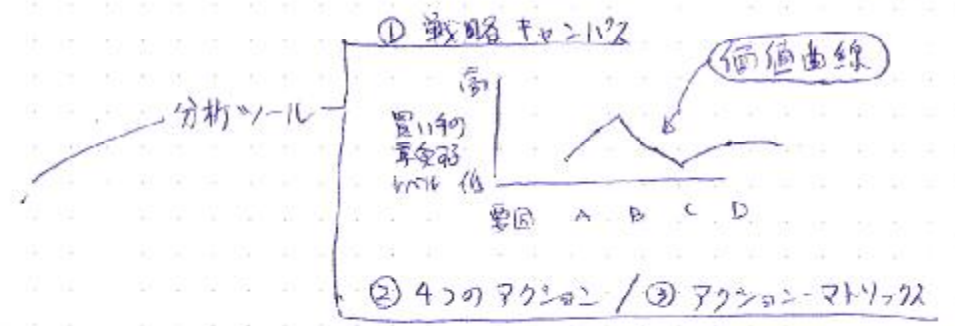 ① 戦略キャンバス
価値曲線
高
分析ツール
買い手の
享受する
レベル 低
要因 A B C D
② 4つのアクション / ③ アクション・マトリックス